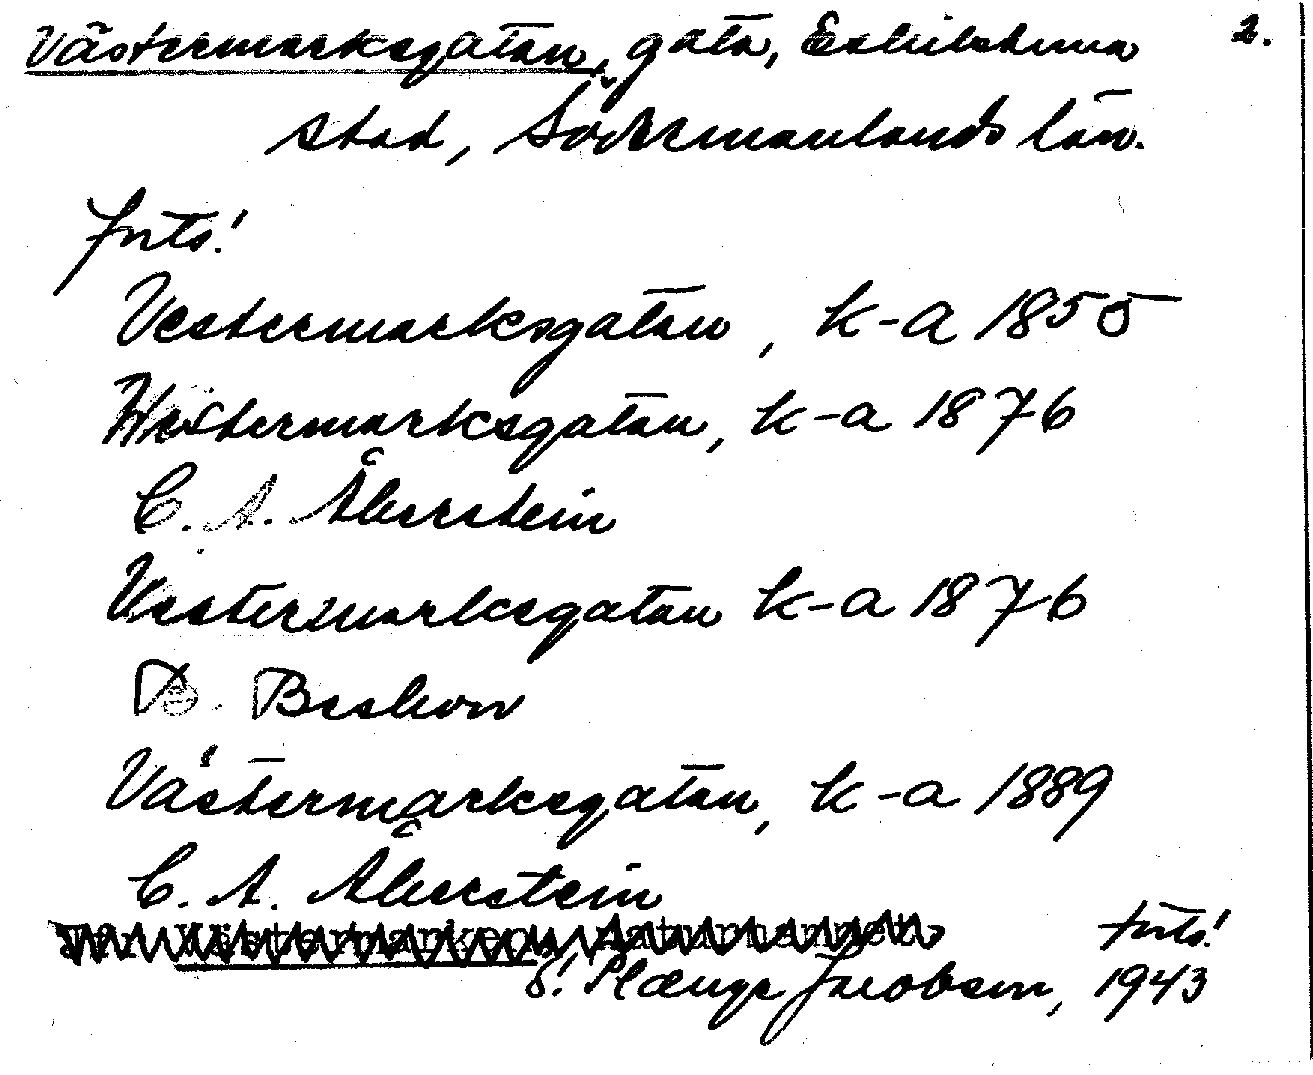 Västermarksgatan, gata, Eskilstuna 2.
stad, Södermanlands län.
forts!
Vestermarksgatan, k-a 1855
Westermarksgatan, k-a 1876
C. A. Åkerstein
Vestermarksgatan k-a 1876
B. Beskow
Västermarksgatan, k-a 1889
C. A. Åkerstein
forts!
S. Plænge Jacobson, 1943